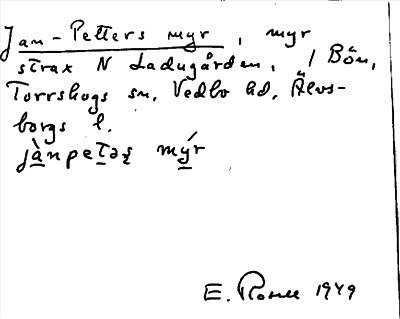 Jan-Petters myr, myr
strax N Ladugården, i Bön,
Torrskogs sn, Vedbo hd, Älvs-
borgs l.
jànpetəʂ mýr
E. Rosell 1949